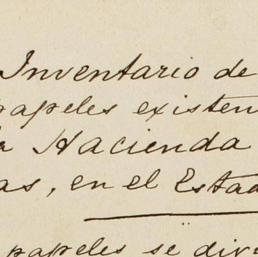 Inventario de
papeles existen
a Hacienda
as, en el Estad
papeles se div